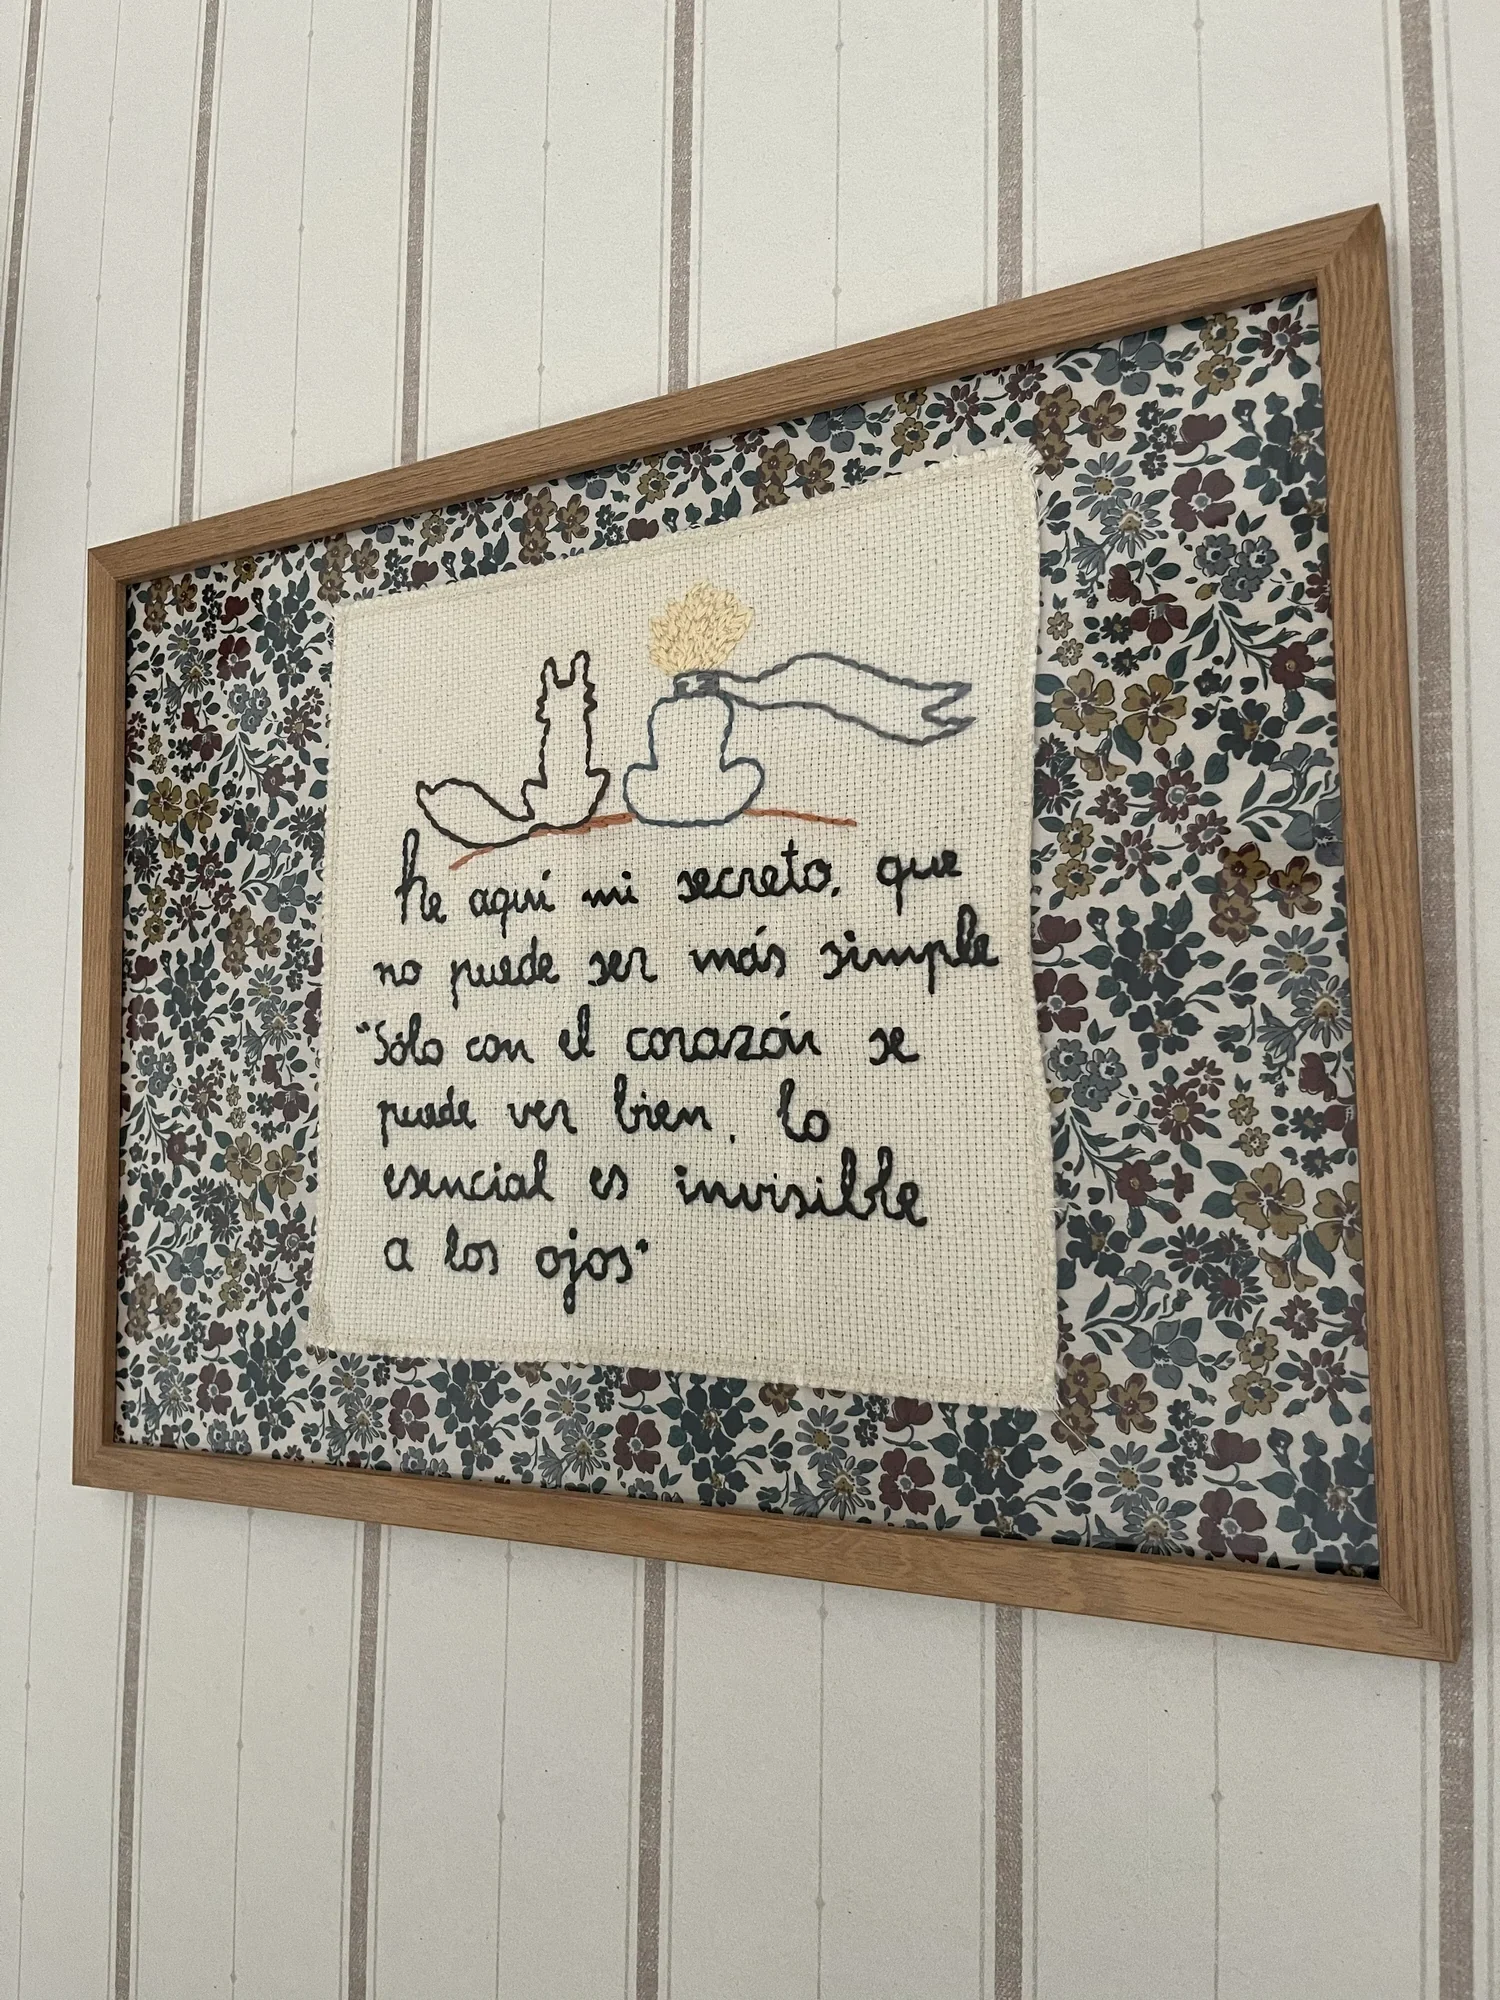 he aquí mi secreto, que
no puede ser más simple
"Sólo con el corazón se
puede ver bien, lo
esencial es invisible
a los ojos"